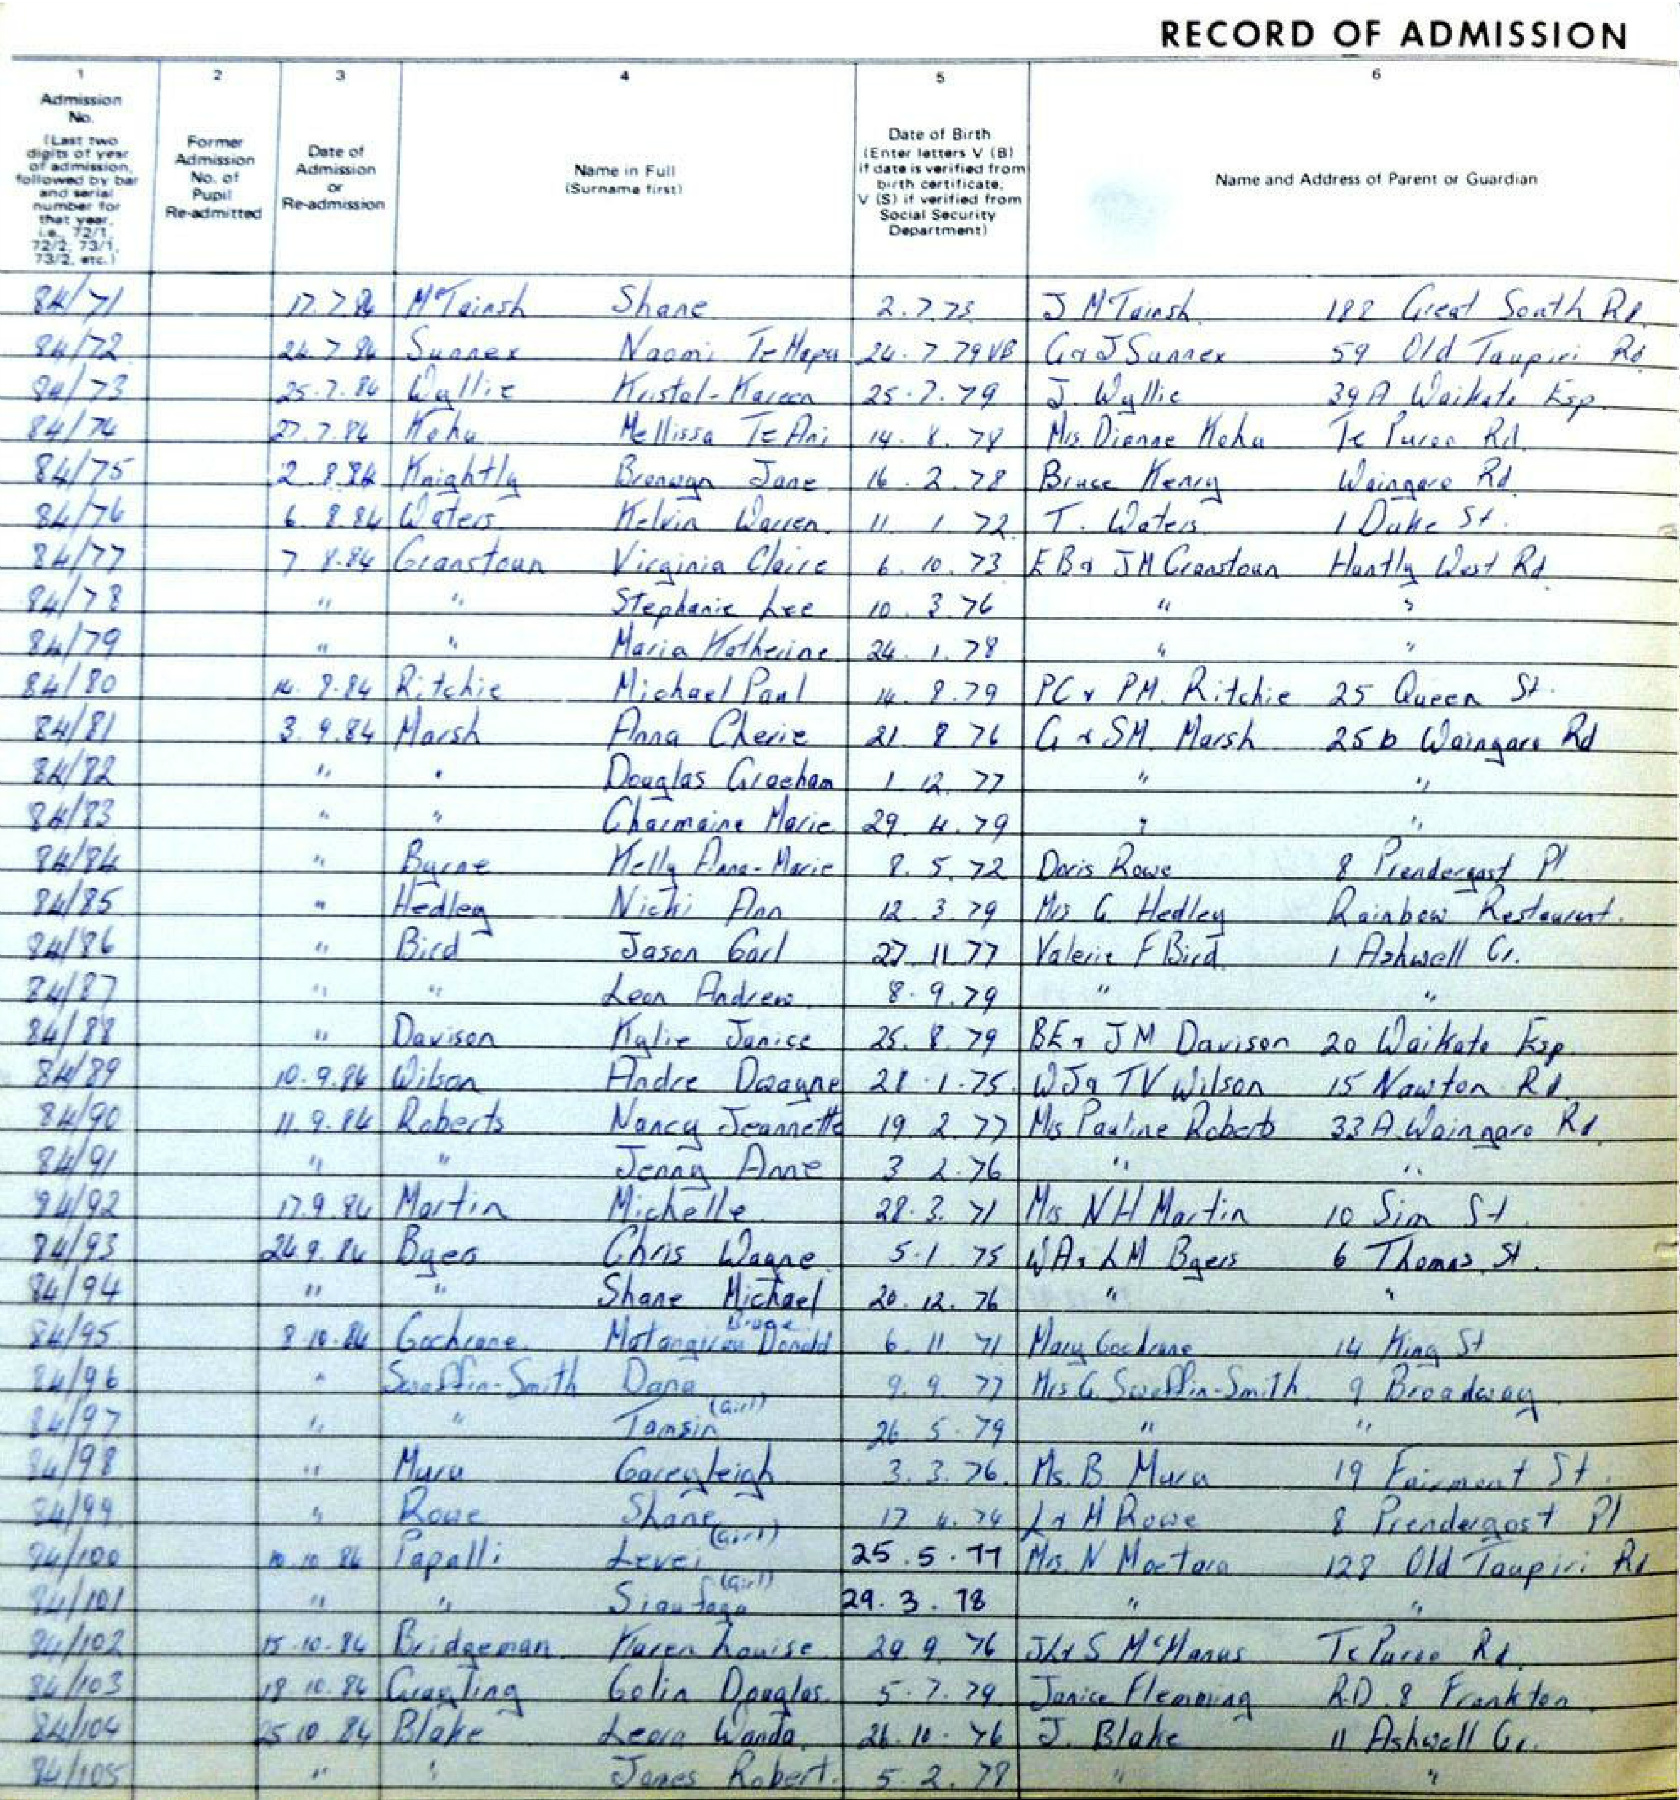 RECORD OF ADMISSION
1 2 3 4 5 6
Admission No. (Last two digits of year of admission, followed by bar and serial number for that year, i.e., 72/1, 72/2, 73/1, 73/2, etc.)
Former Admission No. of Pupil Re-admitted
Date of Admission or Re-admission
Name in Full (Surname first)
Date of Birth (Enter letters V (B) if date is verified from birth certificate; V (S) if verified from Social Security Department)
Name and Address of Parent or Guardian
84/71 17.7.84 McTainsh Shane 2.7.75 J McTainsh 188 Great South Rd.
84/72 24.7.84 Sunnex Naomi Te Hapu 24.7.79 VB G & J Sunnex 59 Old Taupiri Rd
84/73 25.7.84 Wyllie Kristal-Kareen 25.7.79 J. Wyllie 39A Waikato Esp.
84/74 27.7.84 Kohu Mellissa Te Ani 14.8.78 Mrs. Dianne Kohu Te Puroa Rd.
84/75 2.8.84 Knightly Bronwyn Jane 16.2.78 Bruce Henry Waingaro Rd.
84/76 6.8.84 Waters Kelvin Warren 11.1.72 T. Waters 1 Duke St.
84/77 7.8.84 Cranstoun Virginia Claire 6.10.73 EB & JM Cranstoun Huntly West Rd
84/78 " " Stephanie Lee 10.3.76 " "
84/79 " " Maria Katherine 24.1.78 " "
84/80 14.8.84 Ritchie Michael Paul 14.8.79 PC & PM. Ritchie 25 Queen St.
84/81 3.9.84 Marsh Anna Cherie 21 8 76 G & SM. Marsh 25b Waingaro Rd
84/82 " " Douglas Graeham 1.12.77 " "
84/83 " " Charmaine Marie 29.4.79 " "
84/84 " Byrne Kelly Anna-Marie 8.5.72 Doris Rowe 8 Prendergast Pl
84/85 " Hedley Nicki Ann 12.3.79 Mrs G. Hedley Rainbow Restaurant.
84/86 " Bird Jason Carl 27.11.77 Valerie F Bird 1 Ashwell Cr.
84/87 " " Leon Andrew 8.9.79 " "
84/88 " Davison Kylie Janice 25.8.79 BE & JM Davison 20 Waikato Esp.
84/89 10.9.84 Wilson Andre Dwayne 28.1.75 WJ & TV Wilson 15 Nawton Rd.
84/90 11.9.84 Roberts Nancy Jeannette 19.2.77 Mrs Pauline Roberts 33A Waingaro Rd.
84/91 " " Jenny Anne 3 2.76 " "
84/92 17.9.84 Martin Michelle 28.3.71 Mrs NH Martin 10 Sim St.
84/93 24.9.84 Byers Chris Wayne 5.1.75 WA & LM Byers 6 Thomas St.
84/94 " " Shane Michael 20.12.76 " "
84/95 8.10.84 Cochrane Donald 6.11.71 Mary Cochrane 14 King St
84/96 " Swaffin-Smith Dana 9.9.77 Mrs G. Swaffin-Smith 9 Broadway
84/97 " " Tamsin (Girl) 26.5.79 " "
84/98 " Muru Careyleigh 3.3.76. Ms. B Muru 19 Fairmont St.
84/99 " Rowe Shane 17.4.74 L & H Rowe 8 Prendergast Pl
84/100 10.10.84 Papalli Levei (Girl) 25.5.77 Mrs. N Moetara 128 Old Taupiri Rd
84/101 " " (Girl) 29.3.78 " "
84/102 15.10.84 Bridgeman Karen Louise 29.9.76 JL & S McManus Te Puroa Rd.
84/103 18.10.84 Colin Douglas 5.7.79 Janice Flemming RD.8 Frankton
84/104 25.10.84 Blake Leora Wanda 26.10.76 J. Blake 11 Ashwell Cr.
84/105 " " James Robert. 5.2.78 " "